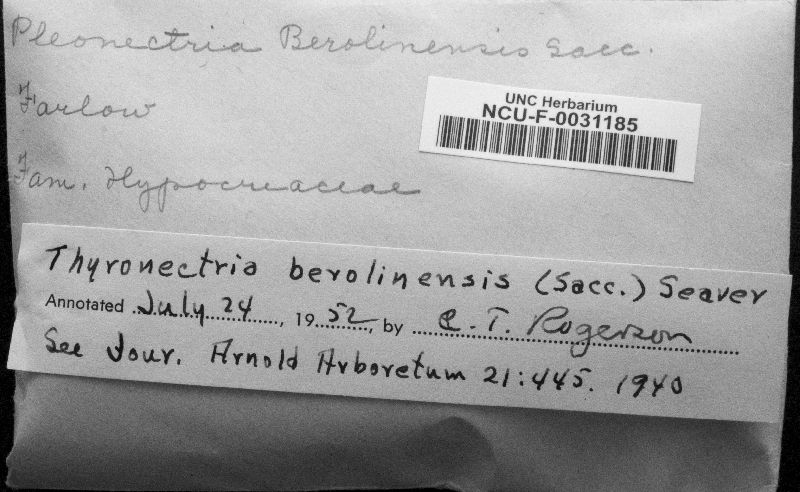 Pleonectria Berolinensis Sacc.
Farlow
Fam. Hypocreaceae
UNC Herbarium
NCU-F-0031185
Thyronectria berolinensis (Sacc.) Seaver
Annotated July 24, 1952, by C. T. Rogerson
See Jour. Arnold Arboretum 21:445. 1940